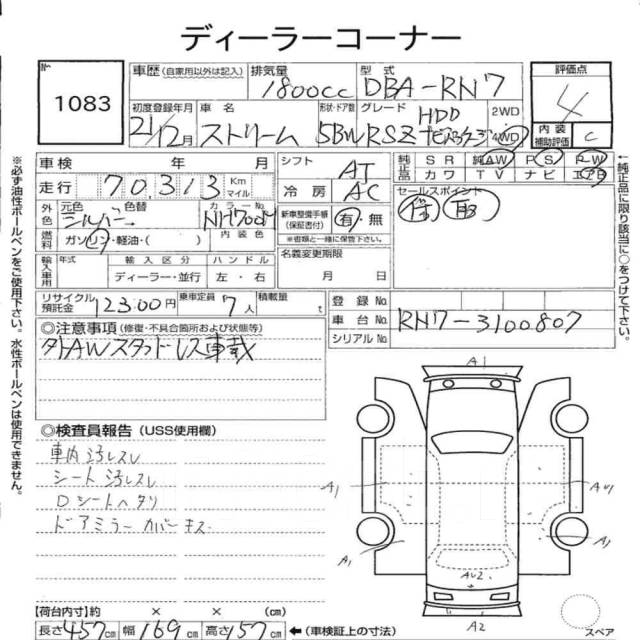 ディーラーコーナー
№ 1083
車歴 (自家用以外は記入) 排気量 1800cc 型式 DBA-RN7 評価点 4
初度登録年月 21年12月 車名 ストリーム 形状・ドア数 5BW グレード RSZ HDD ナビパッケージ 2WD 4WD 内装補助評価 C
車検 年 月 シフト AT 純正品 SR 純AW PS P-W
走行 70,313 Km マイル 冷房 AC カワ TV ナビ エアB
外色 元色 シルバー 色替 カラーNo. NH700M 新車整備手帳(保証書付) 有・無 セールスポイント
燃料 ガソリン・軽油・( ) 内装色 ※書類と一緒に保管下さい。
輸入車用 年式 輸入区分 ディーラー・並行 ハンドル 左・右 名義変更期限 月 日
リサイクル預託金 12300円 乗車定員 7人 積載量 t 登録No.
車台No. RN7-3100807
シリアルNo.
◎注意事項(修復・不具合箇所および状態等)
外AWスタッドレス車載
◎検査員報告(USS使用欄)
車内汚レスレ
シート汚レスレ
Dシートヘタリ
ドアミラーカバーキズ
A1
A1 AU1
A1 A1
AU2
A2
スペア
【荷台内寸】約 × × (cm)
長さ457cm 幅169cm 高さ157cm ←(車検証上の寸法)
※必ず油性ボールペンをご使用下さい。水性ボールペンは使用できません。
←純正品に限り該当に○をつけて下さい。